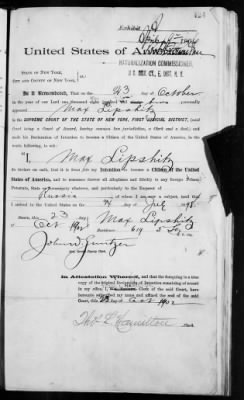 Exhibit A
United States of America
NATURALIZATION COMMISSIONER,
U. S. DIST. CT. E. DIST. N. Y.
STATE OF NEW YORK,
CITY AND COUNTY OF NEW YORK,
Be it Remembered, That on the 23 day of October
in the year of our Lord one thousand personally
appeared Max Lipshitz
in the SUPREME COURT OF THE STATE OF NEW YORK, FIRST JUDICIAL DISTRICT, (said
Court being a Court of Record, having common law jurisdiction, a Clerk and a Seal,) and
made his Declaration of Intention to become a Citizen of the United States of America, in the
words following, to wit:
"I, Max Lipshitz
do declare on oath, that it is bona fide my Intention to become a Citizen of the United
States of America, and to renounce forever all Allegiance and Fidelity to any foreign Prince,
Potentate, State or Sovereignty whatever, and particularly to the Emperor of
Russia of whom I am now a subject, and that I
arrived in the United States on the day of July
Sworn, this 23 day of
Oct 1902
Max Lipshitz
Residence: 619 5
In Attestation Whereof, and that the foregoing is a true
copy of the original Declaration of Intention remaining of record
in my office, I, Clerk of the said Court, have
hereunto subscribed my name and affixed the seal of the said
Court, this 23 day of Oct 1902
Thos L Hamilton Clerk.